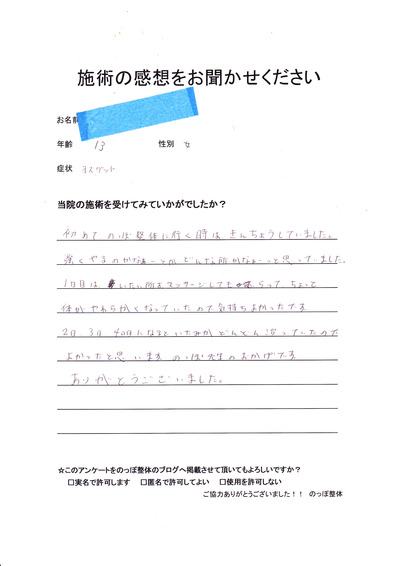 施術の感想をお聞かせください
お名前
年齢 13 性別 女
症状 オスグット
当院の施術を受けてみていかがでしたか？
初めてのっぽ整体に行く時はきんちょうしていました。
強くやるのかなぁーとか どんな所かなぁーっと思っていました。
1日目は いたい所はマッサージしてもらって、ちょっと
体がやわらかくなっていたので気持ちよかったです
2日、3日、4日になるといたみがどんどん減っていたので
よかったと思います のっぽ先生のおかげです
ありがとうございました。
☆このアンケートをのっぽ整体のブログへ掲載させて頂いてもよろしいですか？
□実名で許可します □匿名で許可してよい □使用を許可しない
ご協力ありがとうございました！！ のっぽ整体